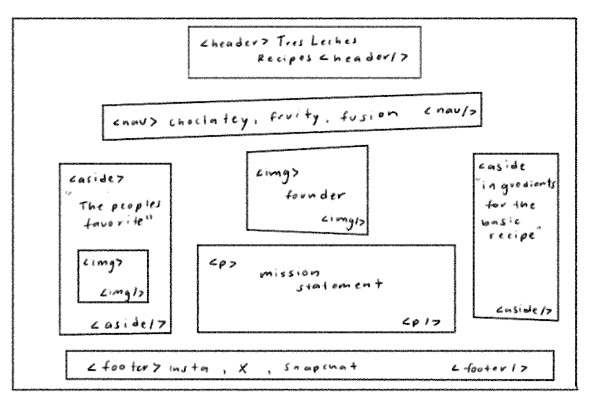 <header> Tres Leches
Recipes <header/>
<nav> choclatey, fruity, fusion <nav/>
<aside>
"The peoples
favorite"
<img>
<img/>
<aside/>
<img>
founder
<img/>
<p>
mission
statement
<p/>
<aside
"ingredients
for the
basic
recipe"
<aside/>
<footer> insta, X, snapchat <footer/>